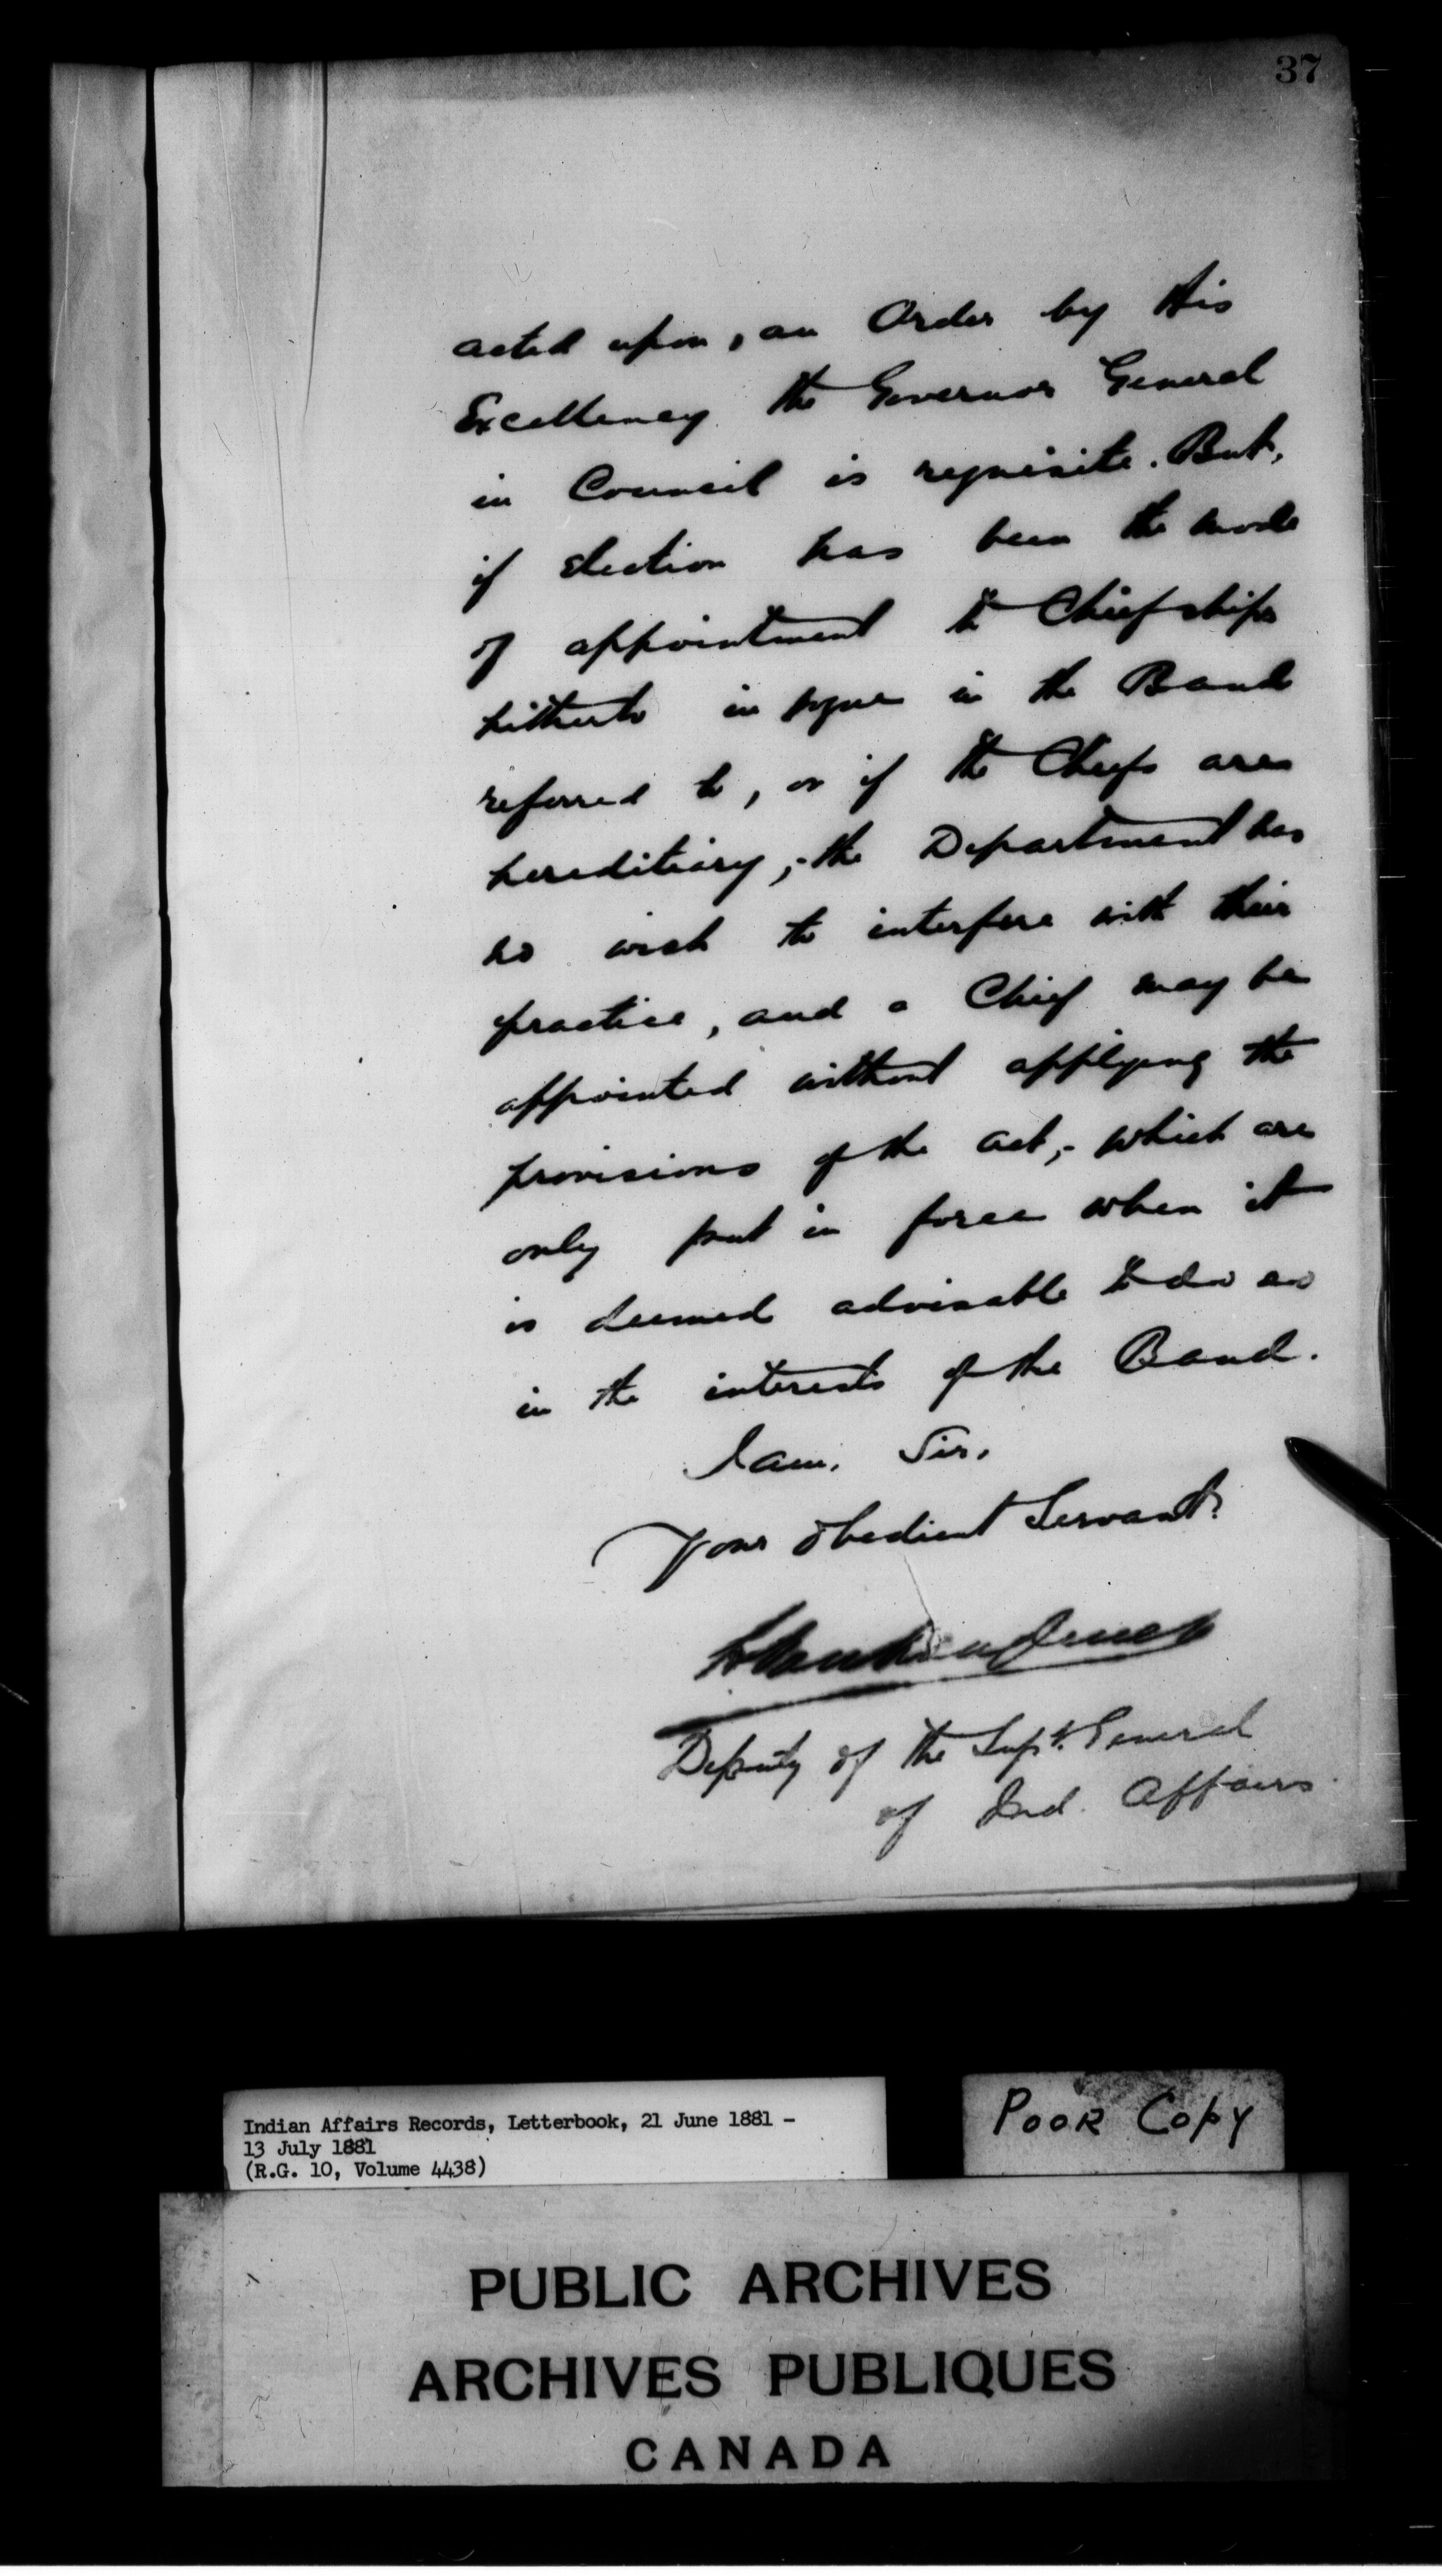 37
acted upon, an Order by His
Excellency the Governor General
in Council is requisite. But,
if election has been the mode
of appointment to Chiefships
hitherto in vogue in the Band
referred to, or if the Chiefs are
hereditiary,- the Department has
no wish to interfere with their
practice, and a Chief may be
appointed without applying the
provisions of the Act,- which are
only put in force when it
is deemed advisable to do so
in the interests of the Band.
I am, Sir,
Your obedient Servant.
Deputy of the Supt. General
of Ind. Affairs
Indian Affairs Records, Letterbook, 21 June 1881 -
13 July 1881
(R.G. 10, Volume 4438)
POOR COPY
PUBLIC ARCHIVES
ARCHIVES PUBLIQUES
CANADA